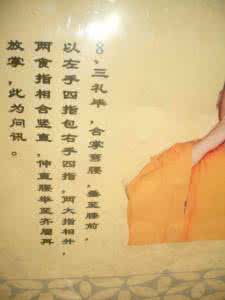 8、三礼毕，合掌弯腰，垂至腰前，
以左手四指包右手四指，两大指相外，
两食指相合竖直，伸直腰举至齐眉再
放掌，此为问讯。